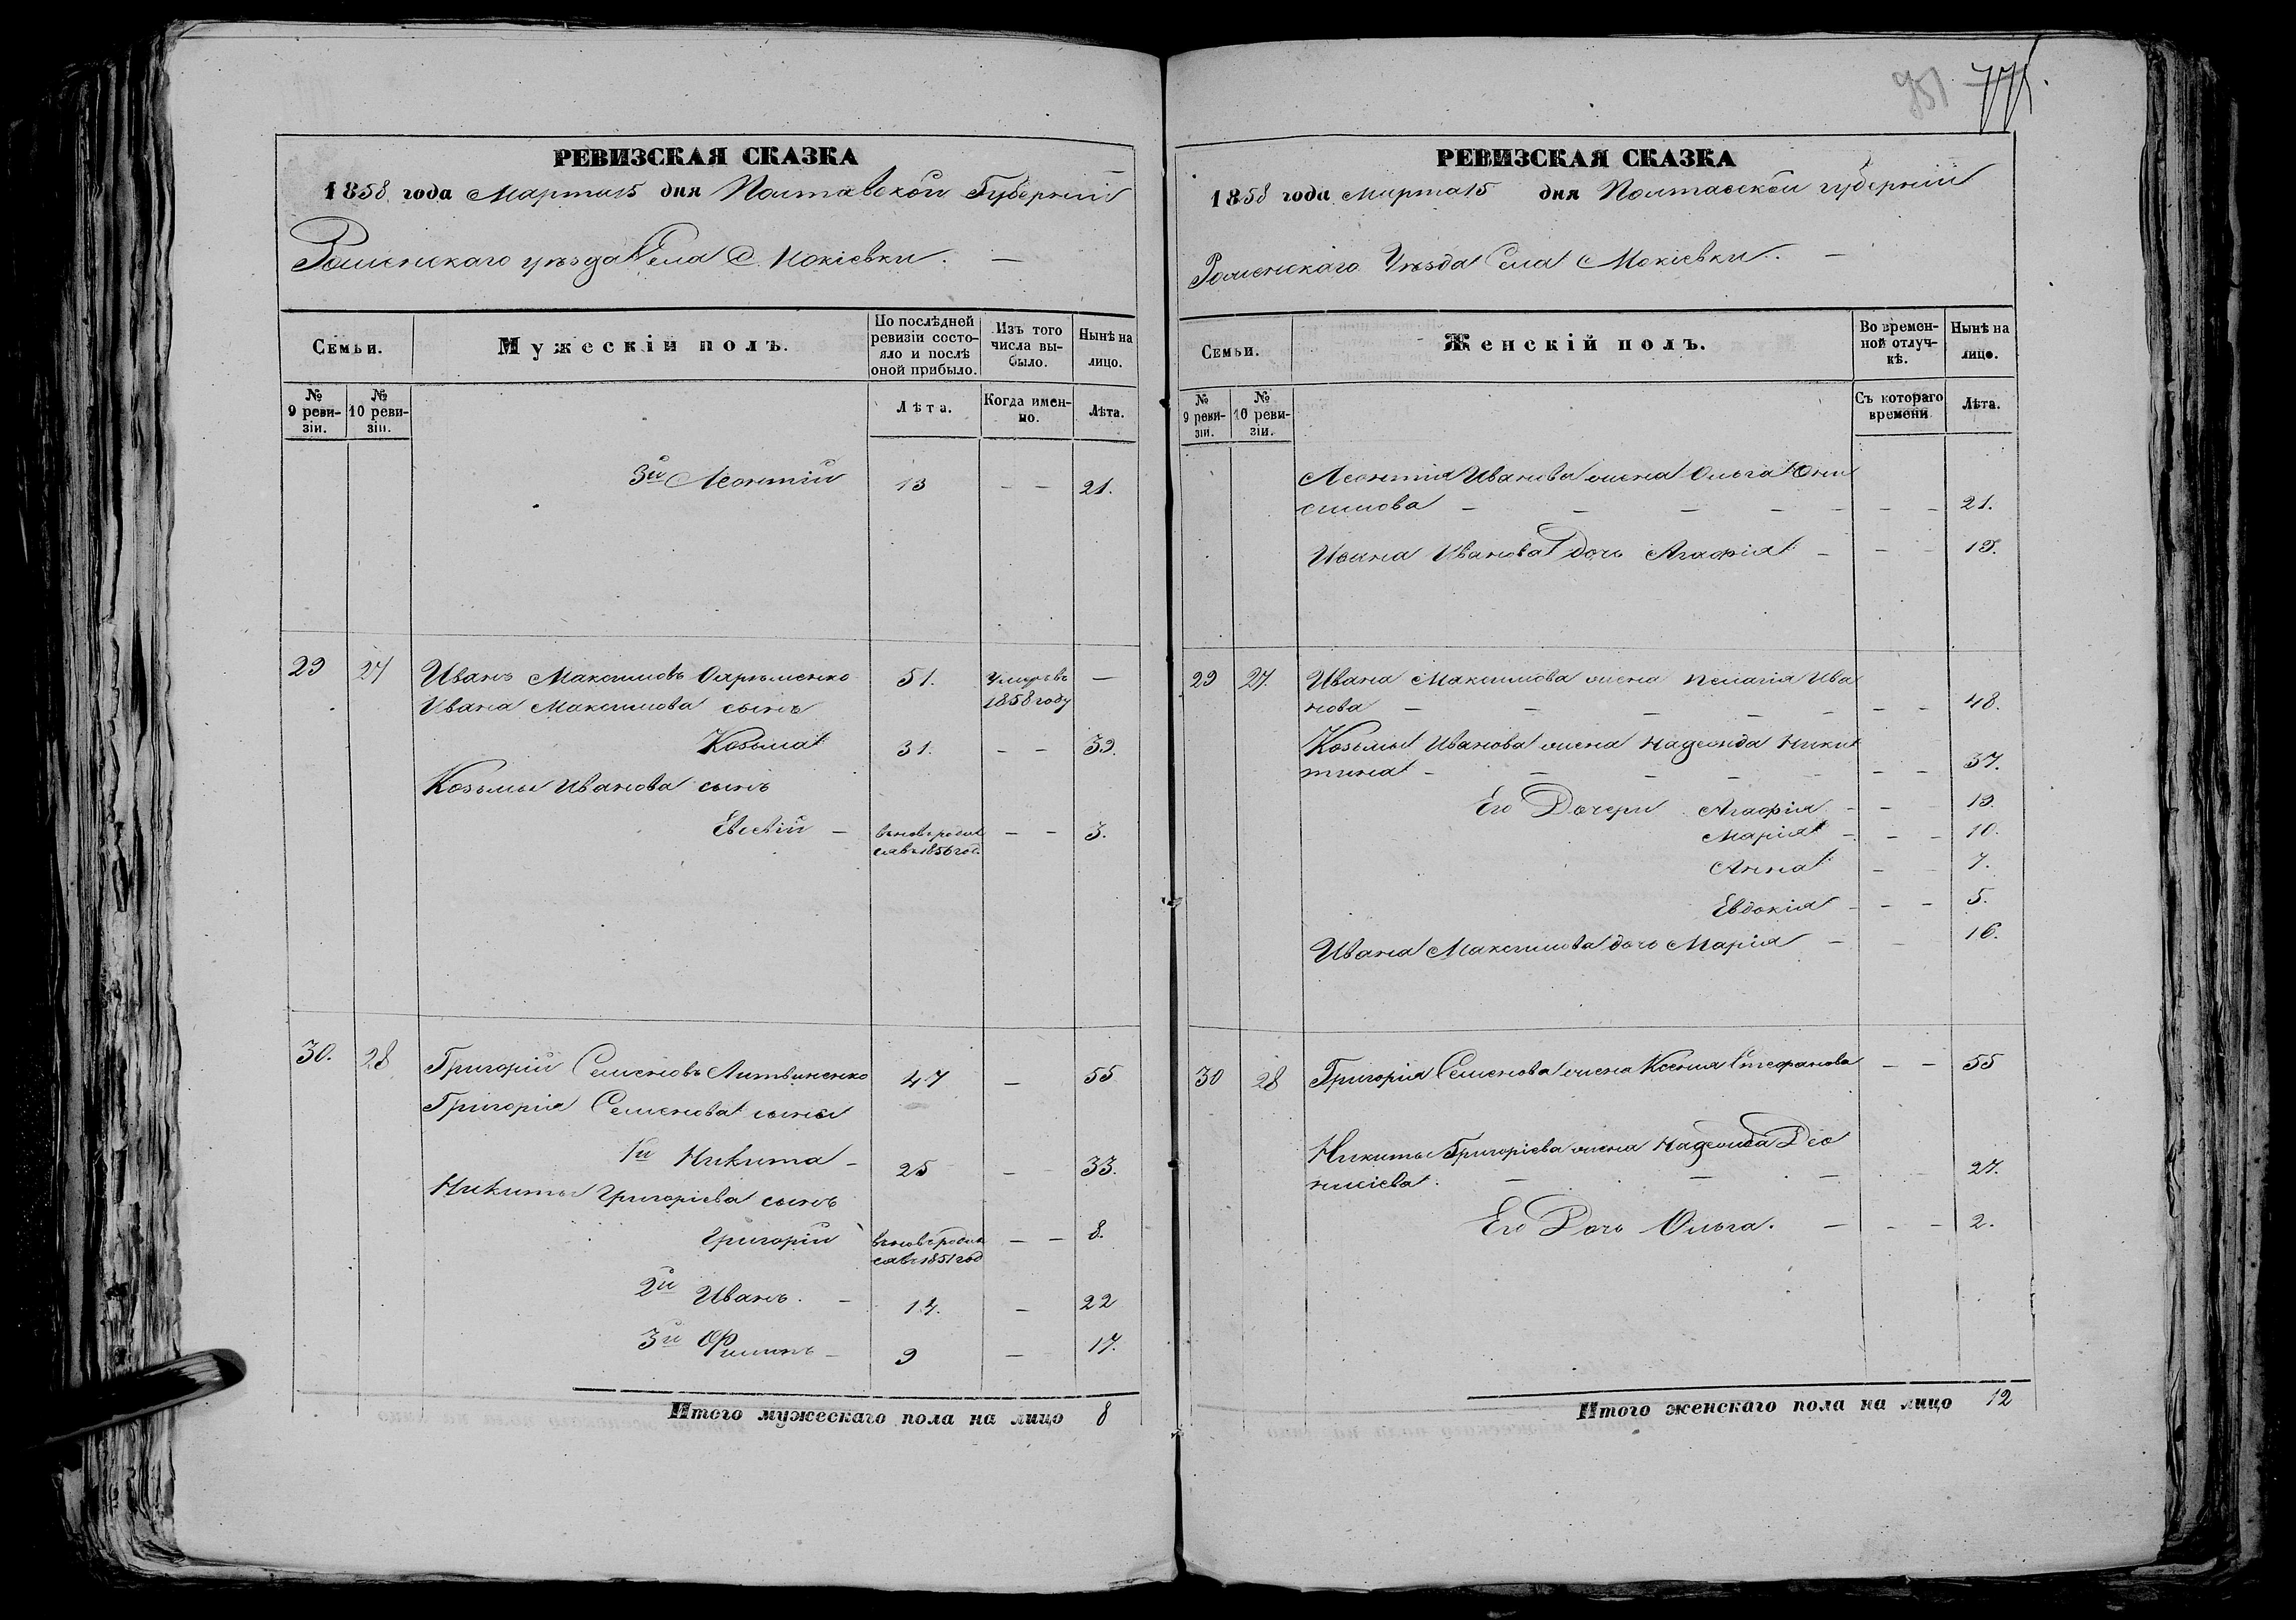 951 775.
РЕВИЗСКАЯ СКАЗКА
1858 года Марта 15 дня Полтавской Губерніи
Роменскаго уѣзда Села Мокіевки. —
Семьи.
Мужескій полъ.
По послѣдней ревизіи состояло и послѣ оной прибыло.
Изъ того числа выбыло.
Нынѣ на лицо.
№ 9 ревизіи.
№ 10 ревизіи.
Лѣта.
Когда именно.
Лѣта.
3й Леонтій 13 — — 21.
29 27 Иванъ Максимовъ 51. Умеръ въ —
Ивана Максимова сынъ 1858 году
Козьма 31. — — 39.
Козьмы Иванова сынъ
Евсевій — вновь родил — — 3.
ся въ 1856 год.
30. 28 Григорій Семеновъ Литвиненко 47 — 55
Григорія Семенова сыны
1й Никита — 25 — 33.
Никиты Григоріева сынъ
Григорій вновь родил — — 8.
ся въ 1851 год
2й Иванъ. — 14. — 22
3й Филипъ — 9 — 17.
Итого мужескаго пола на лицо 8
РЕВИЗСКАЯ СКАЗКА
1858 года Марта 15 дня Полтавской губерніи
Роменскаго Уѣзда Села Мокіевки. —
Семьи.
Женскій полъ.
Во временной отлучкѣ.
Нынѣ на лицо.
№ 9 ревизіи.
№ 10 ревизіи.
Съ котораго времени
Лѣта.
Леонтія Иванова жена Ольга Они
симова — — — — — — — 21.
Ивана Иванова дочь Агафія — — — 13.
29 27. Ивана Максимова жена Пелагія Ива
нова — — — — — — — 48.
Козьмы Иванова жена Надежда Ники
тина — — — — — — — 37.
Его Дочери Агафія — — 13.
Марія — — — 10.
Анна — — 7.
Евдокія — — — 5.
Ивана Максимова дочь Марія — — 16.
30 28 Григорія Семенова жена Ксенія Стефанова — — 55
Никиты Григоріева жена Надежда Део
нисіева. — — — — — 27.
Его Дочь Ольга. — — — 2.
Итого женскаго пола на лицо 12